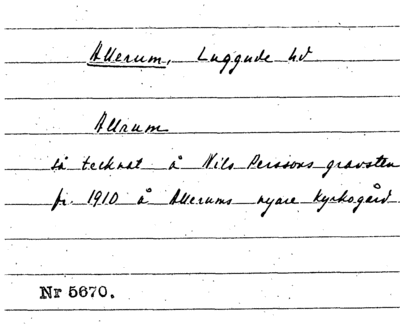 Allerum, Luggude hd
Allrum
så tecknat å Nils Perssons gravsten
fr. 1910 å Allerums nyare kyrkogård.
Nr 5670.